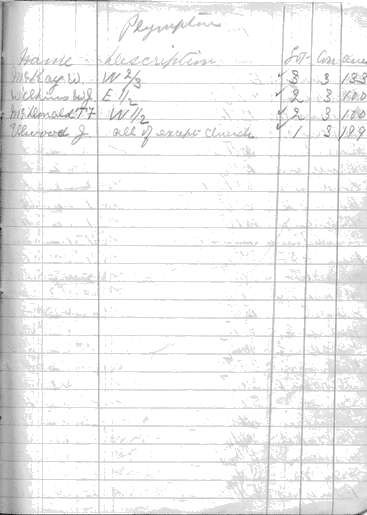 Plympton
Name Description Lot Con
McKay W. W 2/3 3 3 133
Wilkins W J E 1/2 2 3 100
McDonald T F W 1/2 2 3 100
Ellwood J all of except church 1 3 199